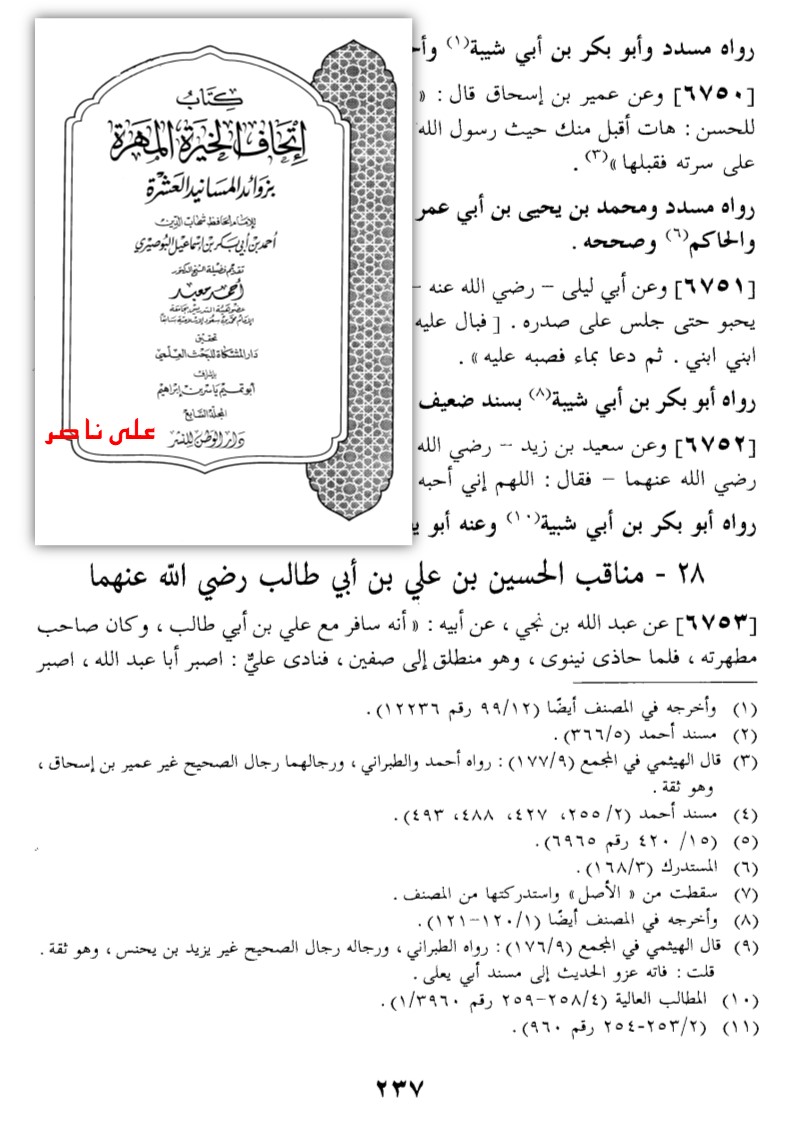 كتاب
إتحاف الخيرة المهرة
بزوائد المسانيد العشرة
للإمام الحافظ شهاب الدين
أحمد بن أبي بكر بن إسماعيل البوصيري
تقديم فضيلة الشيخ الدكتور
أحمد معبد
عضو هيئة التدريس بجامعة
الإمام محمد بن سعود الإسلامية سابقا
تحقيق
دار المشكاة للبحث العلمي
بإشراف
أبو تميم ياسر بن إبراهيم
المجلد السابع
دار الوطن للنشر
على ناصر
رواه مسدد وأبو بكر بن أبي شيبة(١)
[٦٧٥٠] وعن عمير بن إسحاق قال : «
للحسن : هات أقبل منك حيث رسول الله
على سرته فقبلها»(٣) .
رواه مسدد ومحمد بن يحيى بن أبي عمر
والحاكم(٦) وصححه .
[٦٧٥١] وعن أبي ليلى – رضي الله عنه –
يحبو حتى جلس على صدره . [ فبال عليه
ابني ابني . ثم دعا بماء فصبه عليه» .
رواه أبو بكر بن أبي شيبة(٨) بسند ضعيف
[٦٧٥٢] وعن سعيد بن زيد – رضي الله
رضي الله عنهما – فقال : اللهم إني أحبه
رواه أبو بكر بن أبي شيبة(١٠) وعنه أبو
٢٨ - مناقب الحسين بن علي بن أبي طالب رضي الله عنهما
[٦٧٥٣] عن عبد الله بن نجي ، عن أبيه : «أنه سافر مع علي بن أبي طالب ، وكان صاحب
مطهرته ، فلما حاذى نينوى ، وهو منطلق إلى صفين ، فنادى عليٌّ : اصبر أبا عبد الله ، اصبر
(١) وأخرجه في المصنف أيضًا (٩٩/١٢ رقم ١٢٢٣٦) .
(٢) مسند أحمد (٣٦٦/٥) .
(٣) قال الهيثمي في المجمع (١٧٧/٩) : رواه أحمد والطبراني ، ورجالهما رجال الصحيح غير عمير بن إسحاق ،
وهو ثقة .
(٤) مسند أحمد (٢/ ٢٥٥، ٤٢٧، ٤٨٨، ٤٩٣) .
(٥) (١٥/ ٤٢٠ رقم ٦٩٦٥) .
(٦) المستدرك (١٦٨/٣) .
(٧) سقطت من « الأصل» واستدركتها من المصنف .
(٨) وأخرجه في المصنف أيضًا (١٢٠/١–١٢١) .
(٩) قال الهيثمي في المجمع (١٧٦/٩) : رواه الطبراني ، ورجاله رجال الصحيح غير يزيد بن يحنس ، وهو ثقة .
قلت : فاته عزو الحديث إلى مسند أبي يعلى .
(١٠) المطالب العالية (٢٥٨/٤–٢٥٩ رقم ١/٣٩٦٠) .
(١١) (٢٥٣/٢-٢٥٤ رقم ٩٦٠) .
٢٣٧